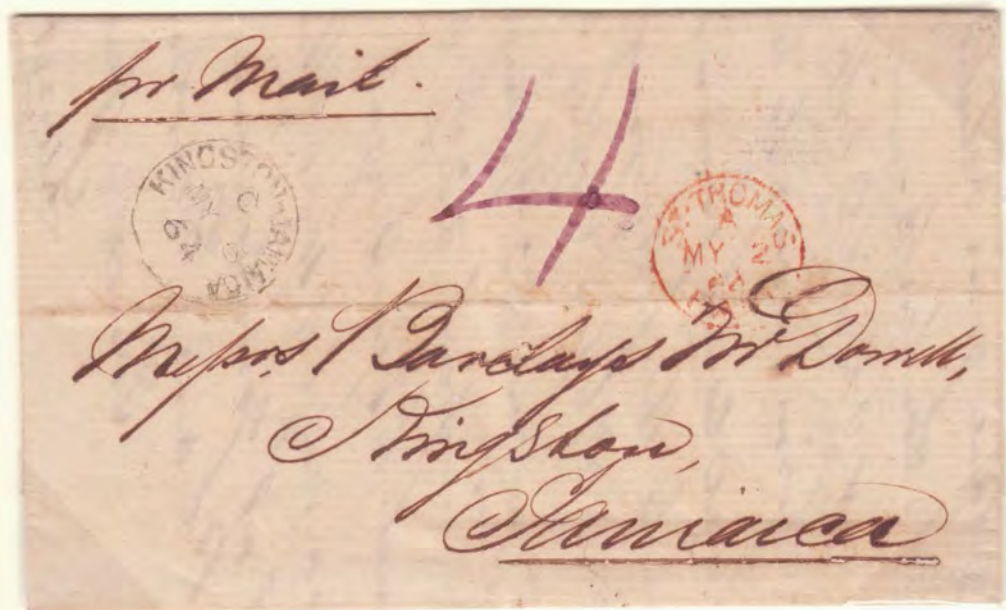 pr Mail.
4
KINGSTON JAMAICA
C
MY
64
ST. THOMAS
A
MY 2
Messrs Barclays Mr Dowell,
Kingston,
Jamaica